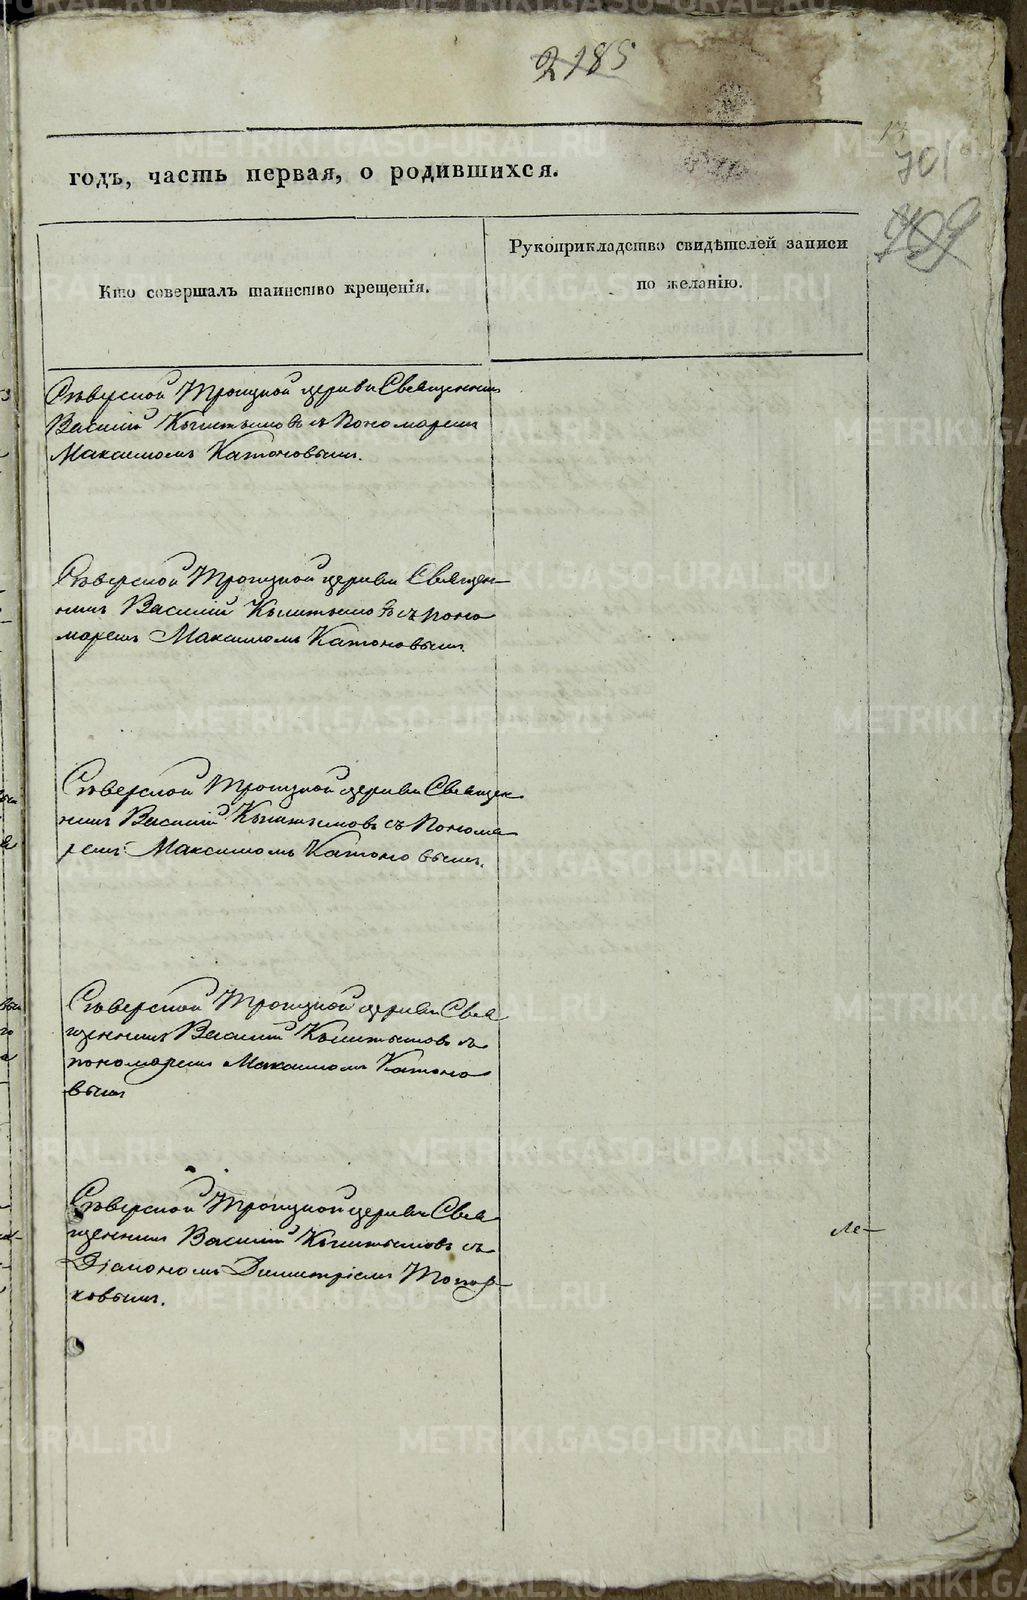 2185
701
годъ, часть первая, о родившихся.
Кто совершалъ таинство крещенія.
Рукоприкладство свидѣтелей записи
по желанію.
Сѣверской Троицкой церкви Священникъ
Василій Кыштымовъ съ Пономаремъ
Максимомъ Катоновымъ.
Сѣверской Троицкой церкви Священ-
никъ Василій Кыштымовъ съ поно
маремъ Максимомъ Катоновымъ.
Сѣверской Троицкой церкви Священ
никъ Василій Кыштымовъ съ Понома
ремъ Максимомъ Катоновымъ.
Сѣверской Троицкой церкви Свя
щенникъ Василій Кыштымовъ съ
пономаремъ Максимомъ Катоно
вымъ
Сѣверской Троицкой церкви Свя
щенникъ Василій Кыштымовъ съ
Діакономъ Димитріемъ Топор
ковымъ.
ле-
METRIKI.GASO-URAL.RU